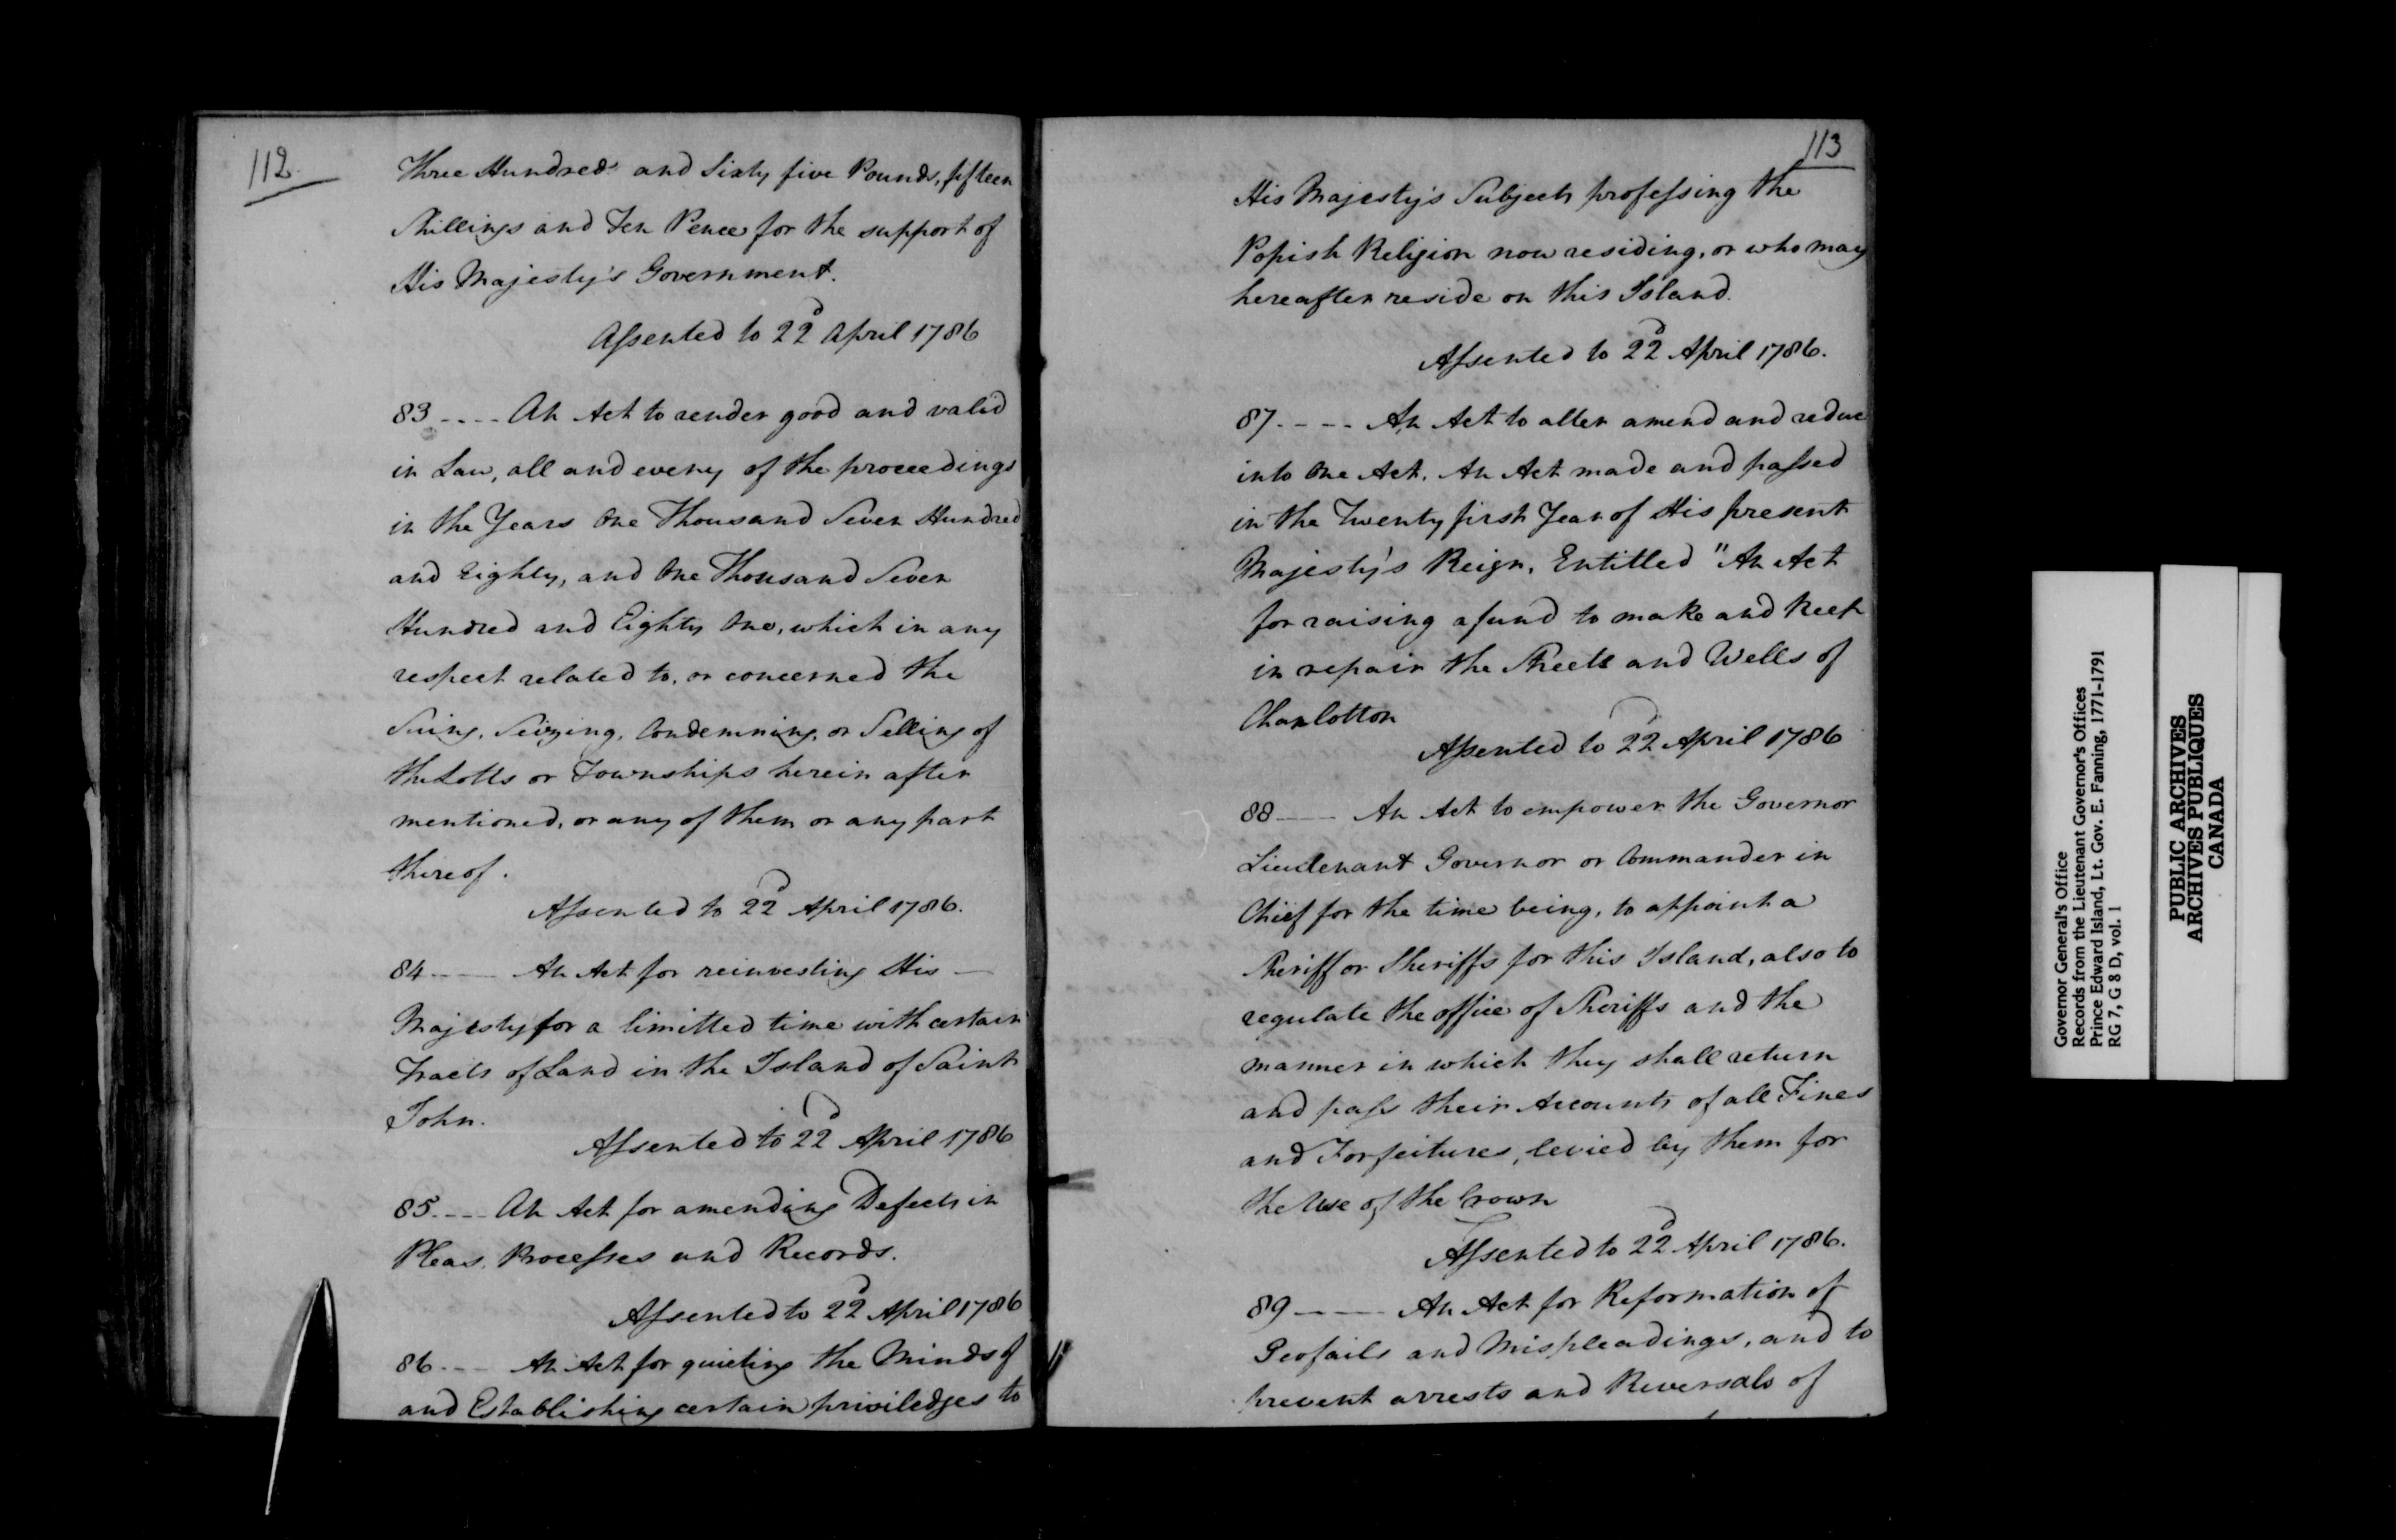 112.
Three Hundred and Sixty five Pounds, fifteen
Shillings and Ten Pence for the support of
His Majesty's Government.
Assented to 22d April 1786
83 .... An Act to render good and valid
in Law, all and every of the proceedings
in the Years One Thousand Seven Hundred
and Eighty, and One Thousand Seven
Hundred and Eighty One, which in any
respect related to, or concerned the
Suing, Seizing, Condemning, or Selling of
the Lotts or Townships herein after
mentioned, or any of them or any part
thereof.
Assented to 22d April 1786.
84 ---- An Act for reinvesting His —
Majesty for a limitted time with certain
Tracts of Land in the Island of Saint
John.
Assented to 22d April 1786
85 ---- An Act for amending Defects in
Pleas, Processes and Records.
Assented to 22d April 1786
86 ---- An Act for quieting the Minds of
and Establishing certain priviledges to
113
His Majesty's Subjects professing the
Popish Religion now residing, or who may
hereafter reside on this Island.
Assented to 22d April 1786.
87 .... An Act to alter amend and reduce
into One Act, An Act made and passed
in the Twenty first Year of His present
Majesty's Reign, Entitled "An Act
for raising a fund to make and keep
in repair the Streets and Wells of
Charlotton
Assented to 22d April 1786
88 ---- An Act to empower the Governor
Lieutenant Governor or Commander in
Chief for the time being, to appoint a
Sheriff or Sheriffs for this Island, also to
regulate the office of Sheriffs and the
manner in which they shall return
and pass their Accounts of all Fines
and Forfeitures, levied by them for
the Use of the Crown
Assented to 22d April 1786.
89 ---- An Act for Reformation of
Jeofails and Mispleadings, and to
prevent arrests and Reversals of
Governor General's Office
Records from the Lieutenant Governor's Offices
Prince Edward Island, Lt. Gov. E. Fanning, 1771-1791
RG 7, G 8 D, vol. 1
PUBLIC ARCHIVES
ARCHIVES PUBLIQUES
CANADA